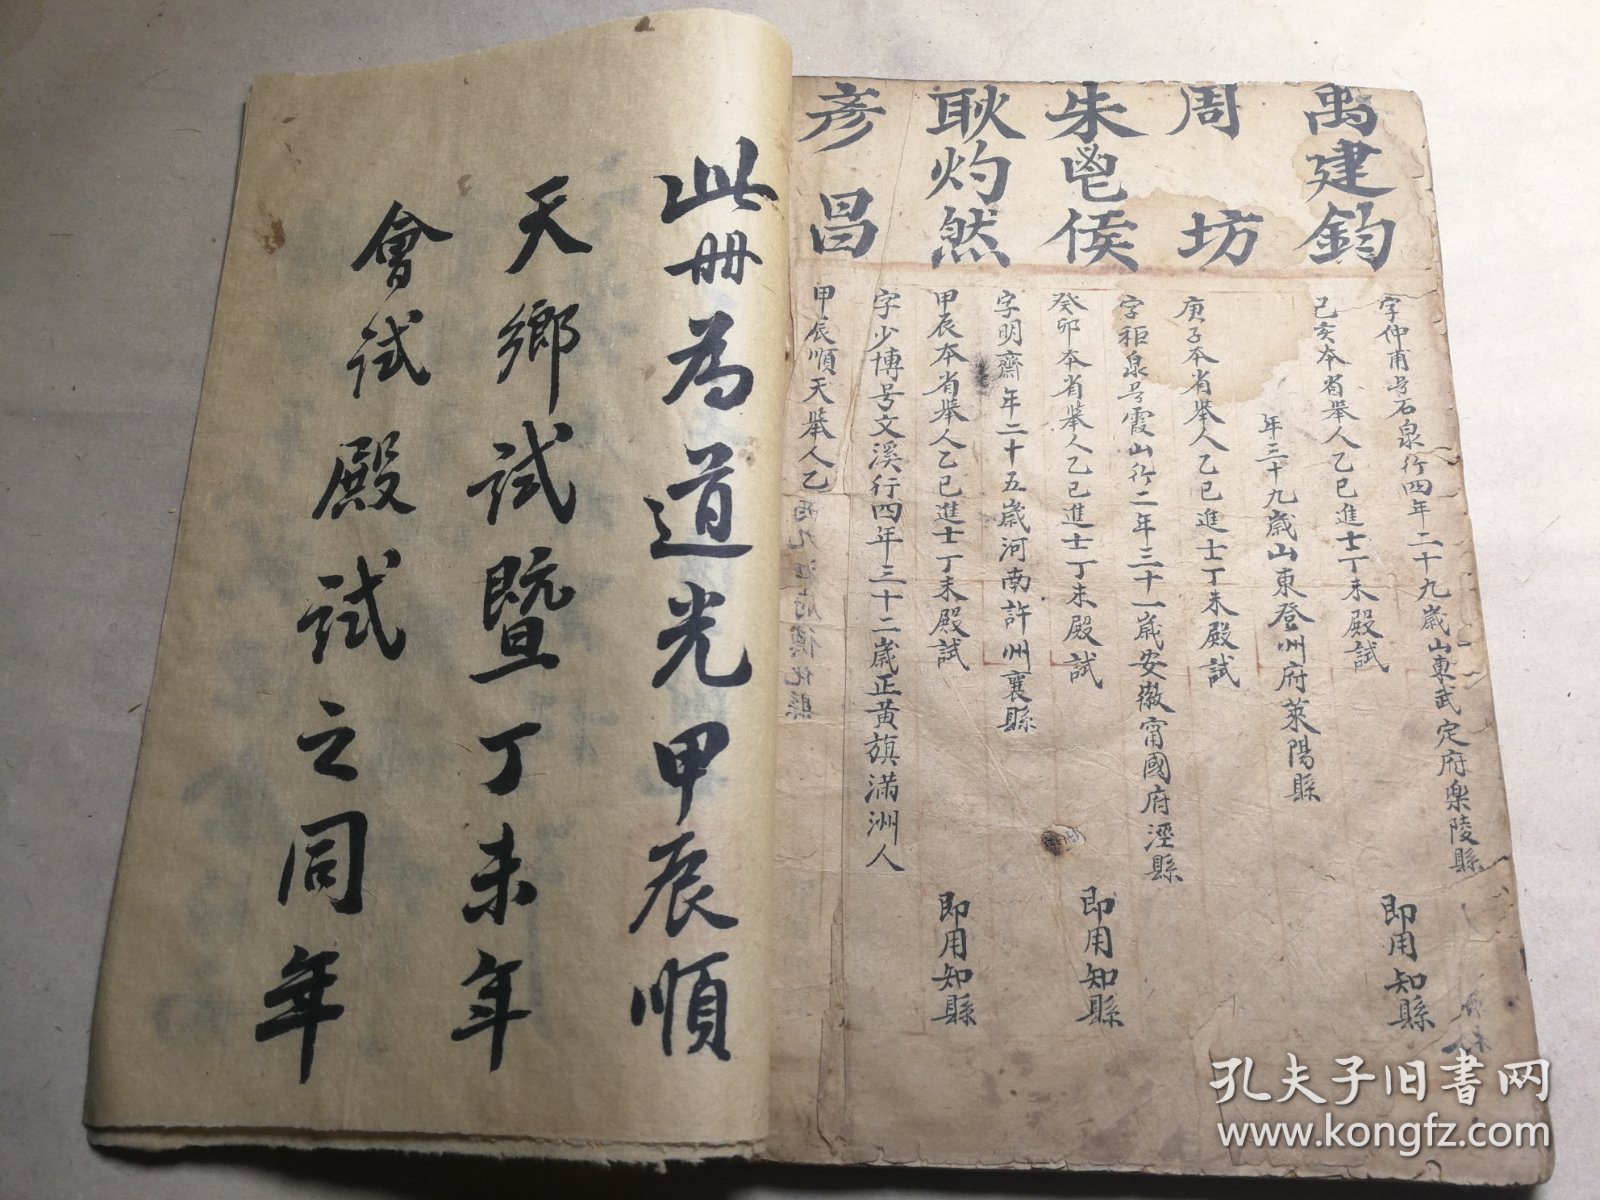 禹建鈞
字仲甫号石泉行四年二十九歲山東武定府樂陵縣
己亥本省舉人乙巳進士丁未殿試
即用知縣
周坊
年三十九歲山東登州府萊陽縣
庚子本省舉人乙巳進士丁未殿試
朱鬯侯
字秬泉号霞山行二年三十一歲安徽甯國府涇縣
癸卯本省舉人乙巳進士丁未殿試
即用知縣
耿灼然
字明齋年二十五歲河南許州襄縣
甲辰本省舉人乙巳進士丁未殿試
即用知縣
彥昌
字少博号文溪行四年三十二歲正黃旗滿洲人
甲辰順天舉人乙
九江府德化縣
此冊為道光甲辰順
天鄉試暨丁未年
會試殿試之同年
孔夫子旧书网
www.kongfz.com